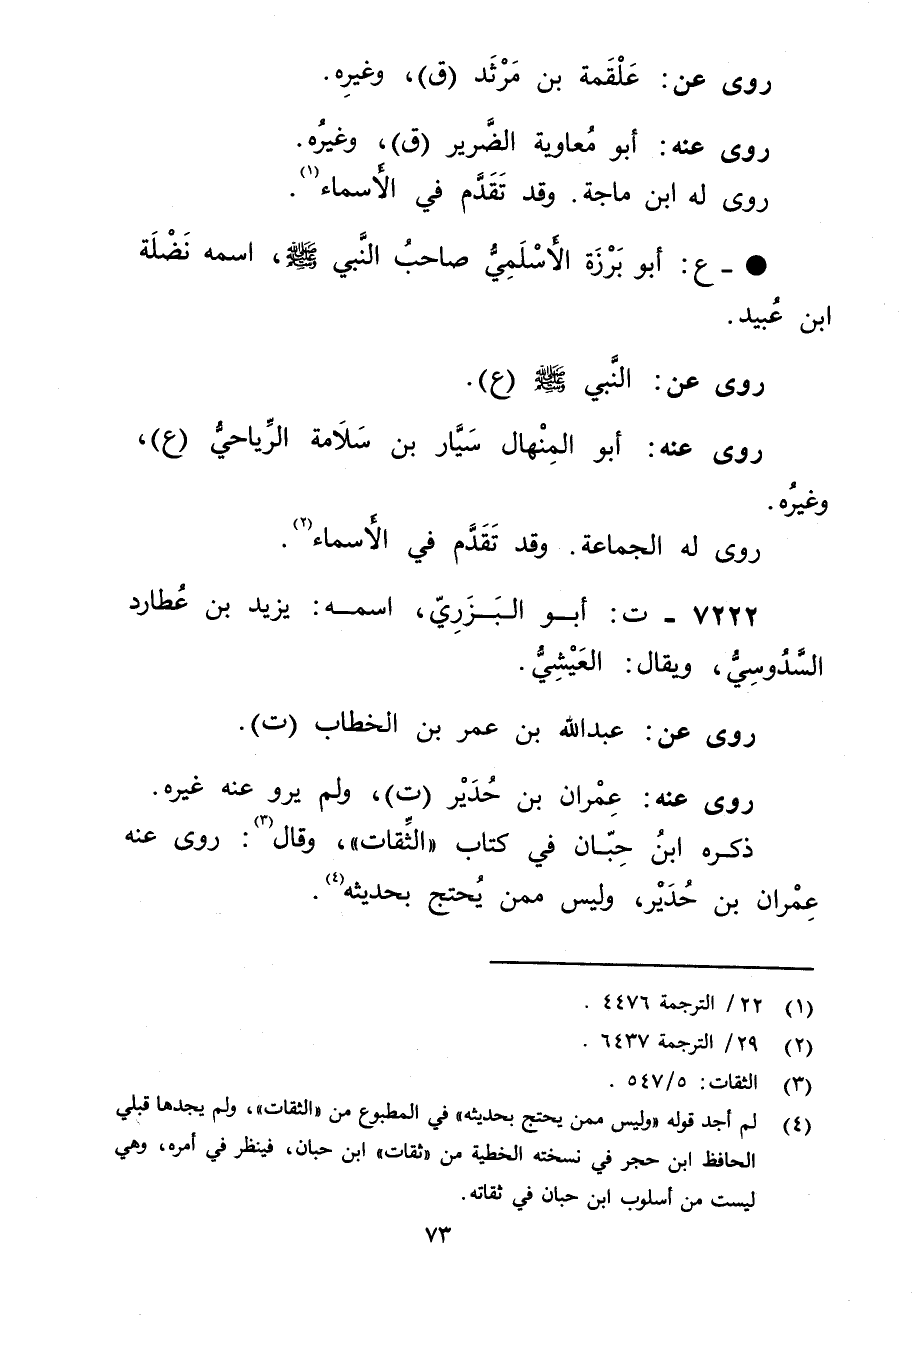 روى عن: عَلْقَمة بن مَرْثَد (ق)، وغيرِه.
روى عنه: أبو مُعاوية الضَّرير (ق)، وغيرُه.
روى له ابن ماجة. وقد تَقَدَّم في الأَسماء(١).
● ـ ع: أبو بَرْزَة الأَسْلَمِيُّ صاحبُ النَّبي ﷺ، اسمه نَضْلَة
ابن عُبيد.
روى عن: النَّبي ﷺ (ع).
روى عنه: أبو المِنْهال سَيَّار بن سَلَامة الرِّياحيُّ (ع)،
وغيرُه.
روى له الجماعة. وقد تَقَدَّم في الأَسماء(٢).
٧٢٢٢ ـ ت: أبـو البَـزَرِيّ، اسمـه: يزيد بن عُطارد
السَّدُوسِيُّ، ويقال: العَيْشِيُّ.
روى عن: عبدالله بن عمر بن الخطاب (ت).
روى عنه: عِمْران بن حُدَيْر (ت)، ولم يرو عنه غيره.
ذكـره ابنُ حِبّـان في كتاب «الثِّقات»، وقال(٣): روى عنه
عِمْران بن حُدَيْر، وليس ممن يُحتج بحديثه(٤).
(١) ٢٢/ الترجمة ٤٤٧٦ .
(٢) ٢٩/ الترجمة ٦٤٣٧ .
(٣) الثقات: ٥٤٧/٥ .
(٤) لم أجد قوله «وليس ممن يحتج بحديثه» في المطبوع من «الثقات»، ولم يجدها قبلي
الحافظ ابن حجر في نسخته الخطية من «ثقات» ابن حبان، فينظر في أمره، وهي
ليست من أسلوب ابن حبان في ثقاته.
٧٣